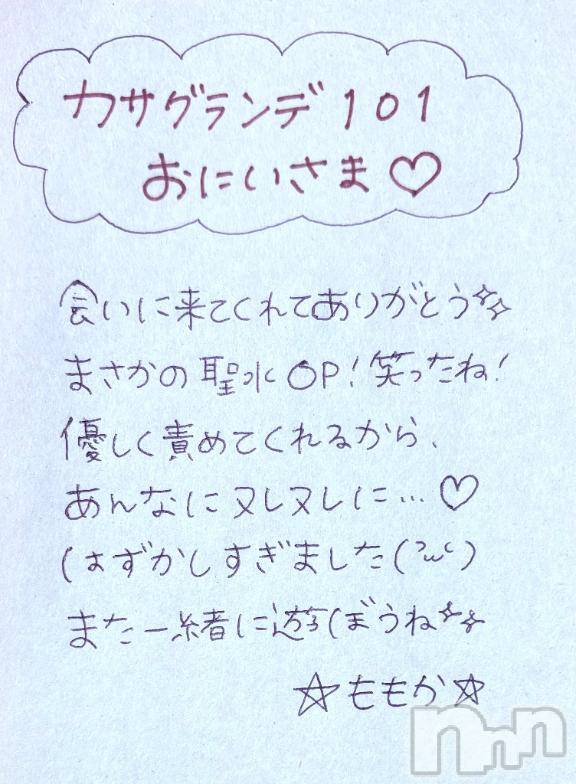 カサグランデ101
おにいさま♡
会いに来てくれてありがとう✨
まさかの聖水OP!笑ったね!
優しく責めてくれるから、
あんなにヌレヌレに…♡
はずかしすぎました(´ω`)
また一緒に遊ぼうね✨
☆ももか☆
nnn